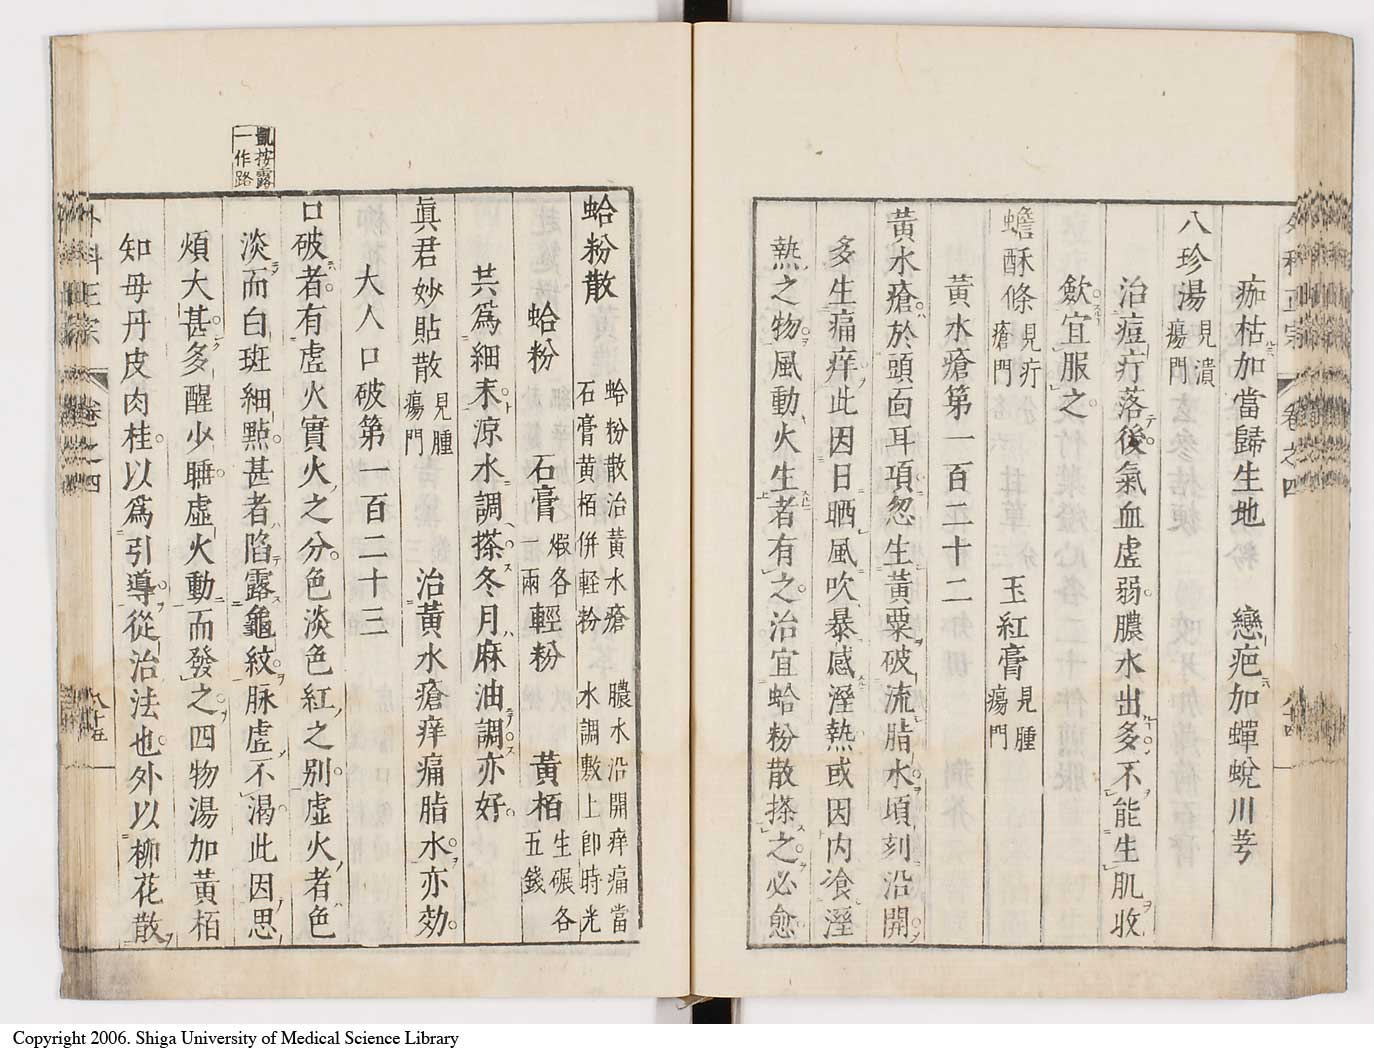 痂枯加當歸生地 戀疤加蟬蛻川芎
八珍湯 見潰瘍門
治痘疔落後氣血虛弱膿水出多不能生肌收
斂宜服之
蟾酥條 見疔瘡門 玉紅膏 見腫瘍門
黃水瘡第一百二十二
黃水瘡於頭面耳項忽生黃粟破流脂水頃刻沿開
多生痛痒此因日晒風吹暴感溼熱或因內飡溼
熱之物風動火生者有之治宜蛤粉散搽之必愈
外科正宗 卷之四
蛤粉散 蛤粉散治黃水瘡 膿水沿開痒痛當
石膏黄栢併輕粉 水調敷上卽時光
蛤粉 石膏 煅各一兩 輕粉 黃栢 生碾各五錢
共爲細末涼水調搽冬月麻油調亦好
眞君妙貼散 見腫瘍門 治黃水瘡痒痛脂水亦効
大人口破第一百二十三
口破者有虛火實火之分色淡色紅之別虛火者色
淡而白斑細點甚者陷露龜紋脉虛不渴此因思
煩大甚多醒少睡虛火動而發之四物湯加黃栢
知母丹皮肉桂以爲引導從治法也外以柳花散
凱按露
一作路
外科正宗 卷之四 八十五
Copyright 2006. Shiga University of Medical Science Library